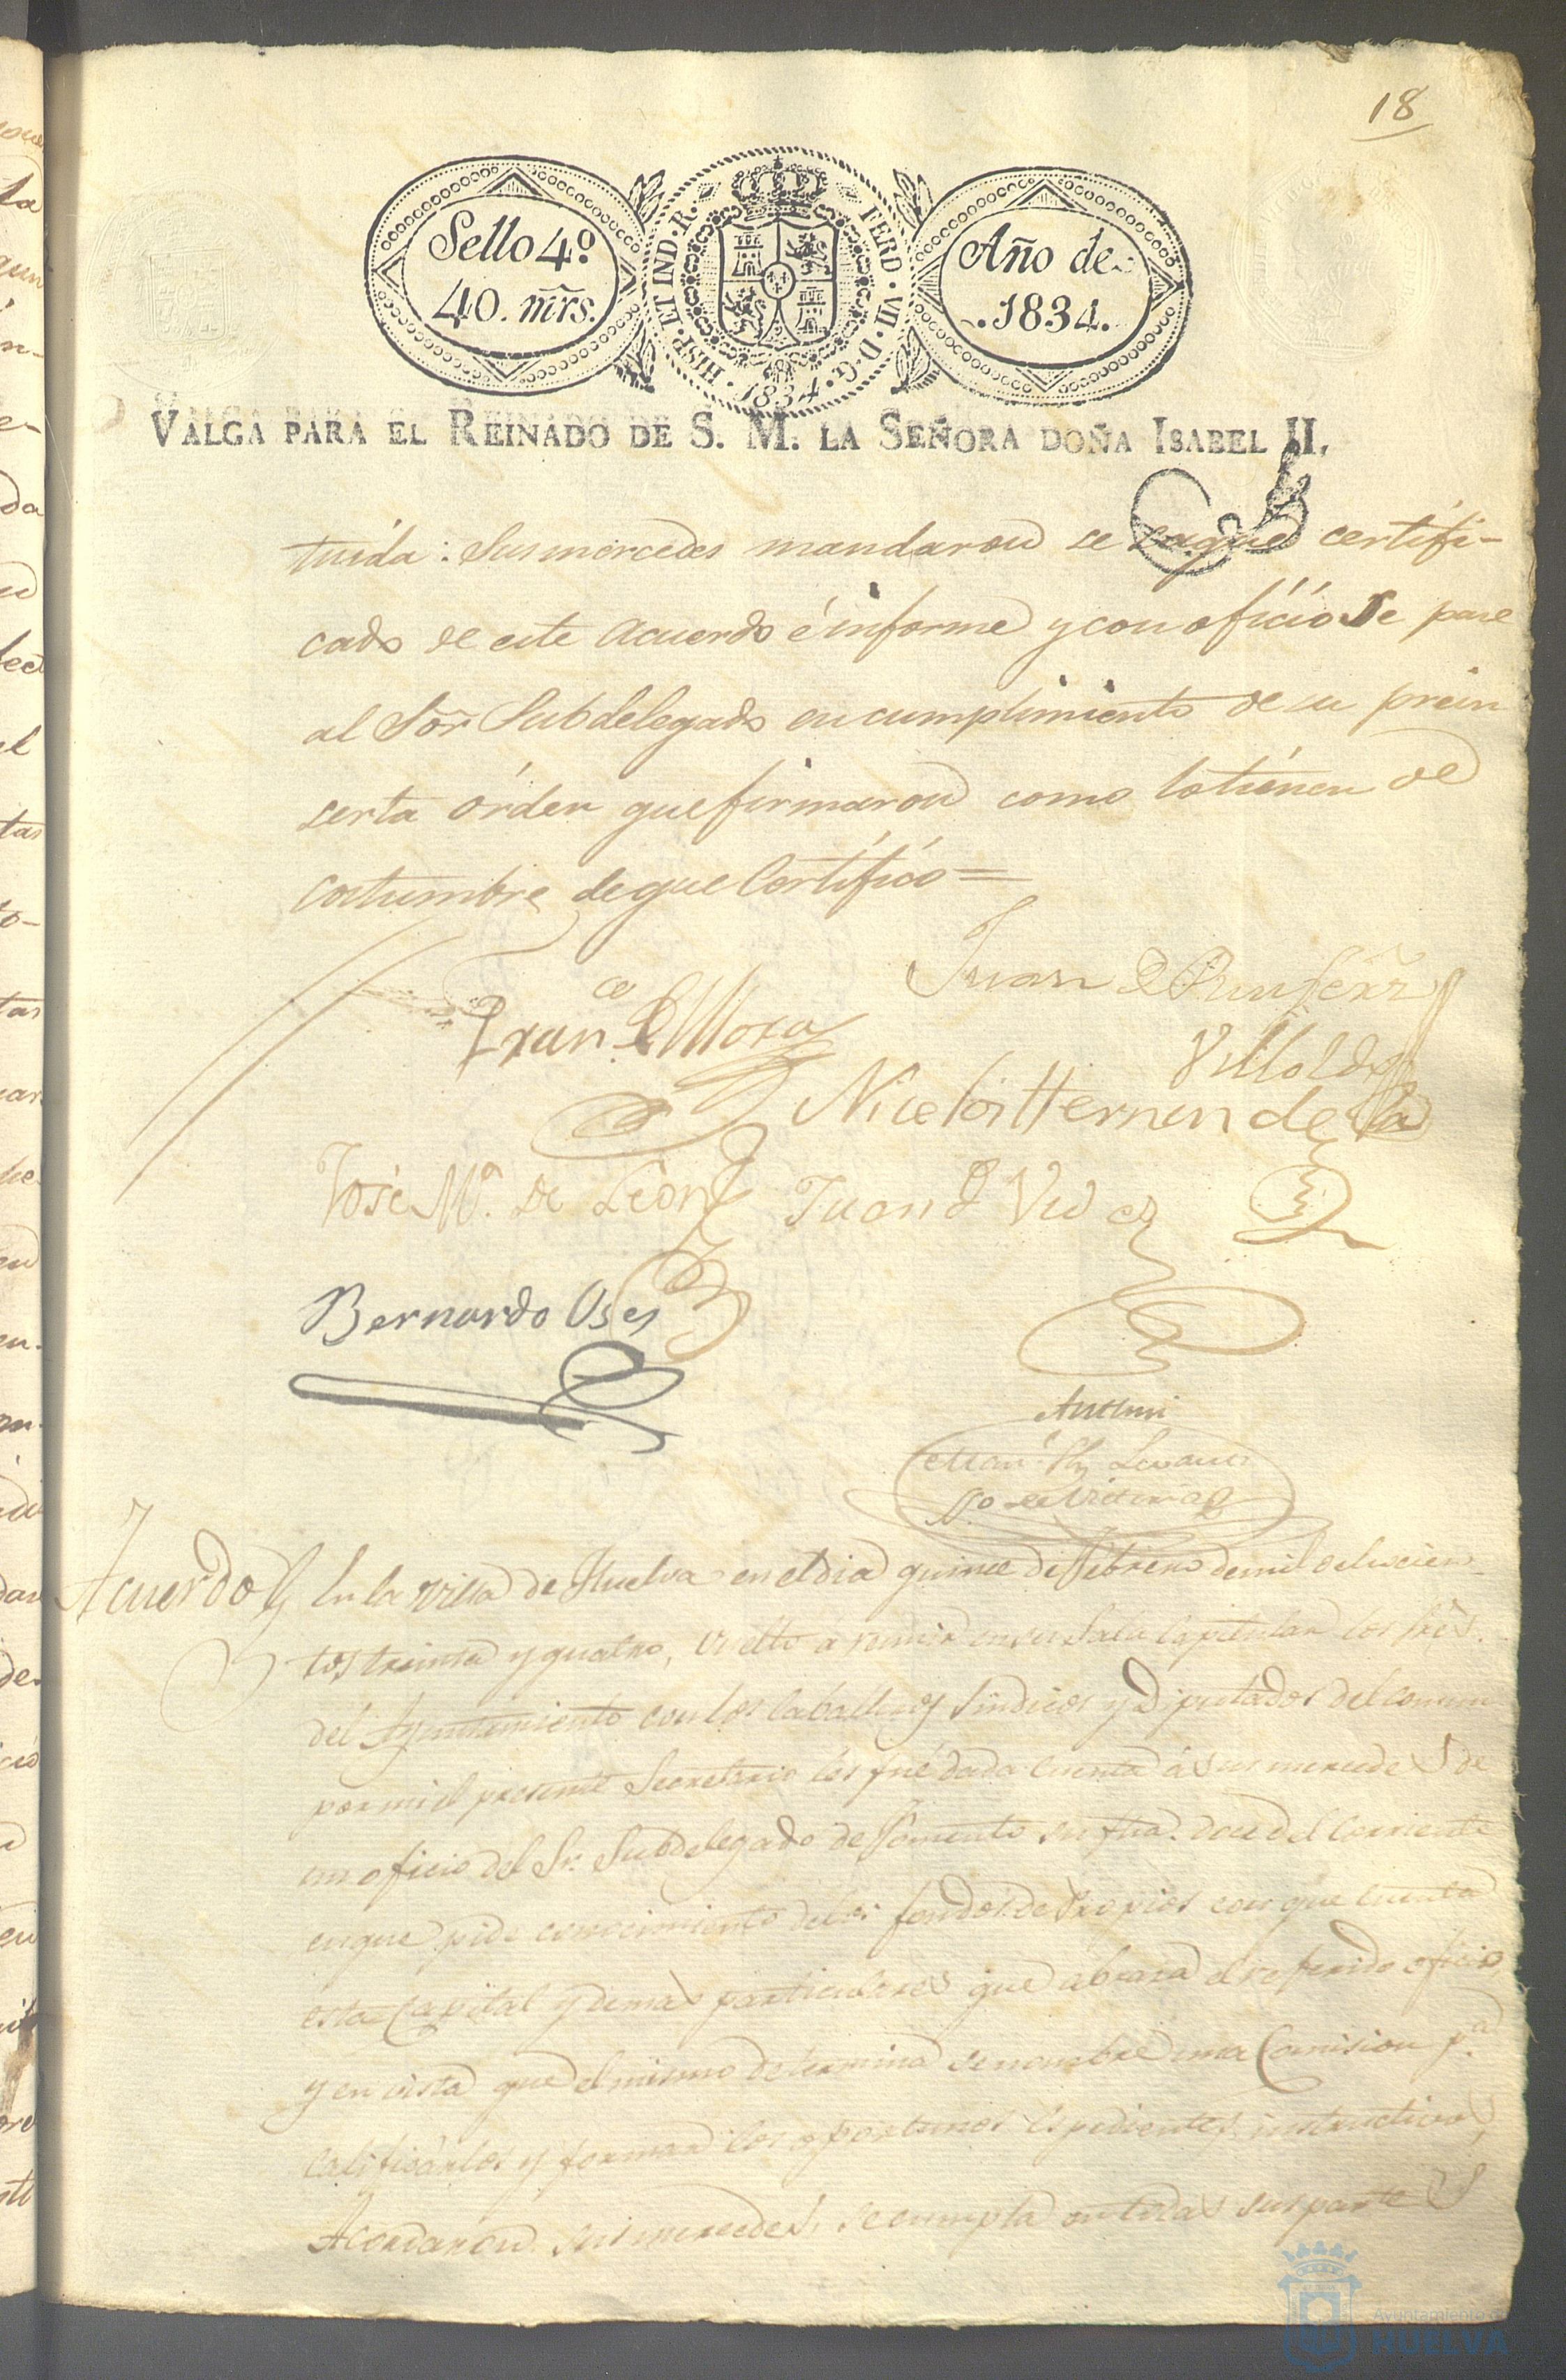 18
Sello 4º
40. mrs.
HISP. ET IND. R.
FERD. VII. D. G.
1834.
Año de
.1834.
VALGA PARA EL REINADO DE S. M. LA SEÑORA DOÑA ISABEL II.
tuida: Sus mercedes mandaron se saque certifi-
cado de este Acuerdo é informe y con oficio Se pase
al Sor Subdelegado en cumplimiento de su prein
serta órden que firmaron como lo tiénen de
costumbre de que Certifico =
Juan
Franco Mora
Villoldo
José Mª. de León Juan
Bernardo Oses
Ante mi
Acuerdo En la Villa de Huelva en el dia quince de Febrero de mil ochocien
tos treinta y quatro, vuelto á reunir en su Sala Capitular los Sres.
del Ayuntamiento con los Caballeros Sindicos y Diputados del comun
por mi el presente Secretario les fué dada Cuenta á sus mercedes de
un oficio del Sr. Subdelegado de Fomento su fha. doce del Corriente
en que pide conocimiento de los fondos de Propios con que cuenta
esta Capital y demas particulares que abraza el referido oficio,
y en vista que el mismo determina se nombre una Comision pª
calificarlos y formar los oportunos espedientes instructivos,
Acordaron sus mercedes, se cumpla en todas sus partes
Ayuntamiento
HUELVA